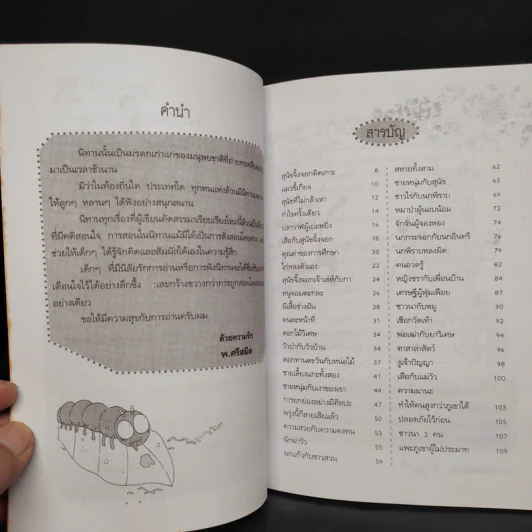 คำนำ
นิทานนั้นเป็นมรดกเก่าแก่ของมนุษยชาติที่ถ่ายทอดสืบต่อกัน
มาเป็นเวลาช้านาน
มิว่าในท้องถิ่นใด ประเทศใด ทุกหนแห่งล้วนมีนิทาน
ให้ลูกๆ หลานๆ ได้ฟังอย่างสนุกสนาน
นิทานทุกเรื่องที่ผู้เขียนคัดสรรมาเรียบเรียงใหม่นี้ล้วนเป็น
ที่มีคติสอนใจ การสอนในนิทานแม้มิได้เป็นการสั่งสอนโดยตรง
ช่วยให้เด็กๆ ได้รู้จักคิดและสัมผัสได้เองในความรู้สึก
เด็กๆ ที่มีนิสัยรักการอ่านหรือการฟังนิทานจะได้
เตือนใจไว้ได้อย่างลึกซึ้ง และกว้างขวางกว่าการถูกสอน
อย่างเดียว
ขอให้มีความสุขกับการอ่านครับผม
ด้วยความรัก
พ.ศรีสมิต
สารบัญ
สุนัขจิ้งจอกติดเกาะ 8
แมวขี้เกียจ 10
สุนัขที่ไม่กล้าเห่า 12
กำไรครั้งเดียว 14
ปลาวาฬผู้เย่อหยิ่ง
เสือกับสุนัขจิ้งจอก
คุณค่าของการศึกษา
ไก่หลงตัวเอง
สุนัขจิ้งจอกเจ้าเล่ห์กับกา
หนูจอมตะกละ
ผีเสื้อช่างฝัน
คนละหน้าที่
ดอกไม้วิเศษ
วัวป่ากับวัวบ้าน
ดอกทานตะวันกับหน่อไม้ 37
ชายเลี้ยงแกะทั้งสอง 41
ชายหนุ่มกับเงาของเขา 44
การยกย่องอย่างมีศิลปะ 47
พรุ่งนี้ก็สายเสียแล้ว 50
ความสวยกับความคงทน 53
นักฆ่าวัว 55
นกแก้วกับชาวสวน 59
สหายทั้งสาม 62
ชายหนุ่มกับสุนัข 65
ชาวไร่กับนกพิราบ 67
หมาป่าผู้นอบน้อม 70
จักจั่นผู้จองหอง 74
นกกระจอกกับนกอินทรี 76
นกพิราบหลงผิด 78
คนอวดรู้ 80
หญิงชรากับเพื่อนบ้าน 83
เศรษฐีผู้ฟุ่มเฟือย 86
ชาวนากับหมู 88
เชือกวัดเท้า 90
พ่อเฒ่ากับยาวิเศษ 92
ตาสาล่าสัตว์ 94
งูเจ้าปัญญา 96
เสือกับแม่วัว 98
ความมานะ 100
ทำให้คนสูงกว่าภูเขาได้ 103
ปลอดภัยไว้ก่อน 105
ชาวนา 2 คน 107
แพะภูเขาผู้ไม่ประมาท 109